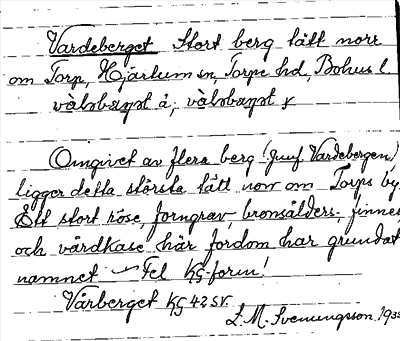 Vardeberget Stort berg tätt norr
om Torp, Hjärtum sn, Torpe hd, Bohus l
Omgivet av flera berg (jmf. Vardebergen)
ligger detta största tätt norr om Torps by.
Ett stort röse, forngrav, bronsålders- finnes
och vårdkase här fordom har grundat
namnet — Fel KG-form!
Vårberget KG 42 SV.
L. M. Svenungsson 193